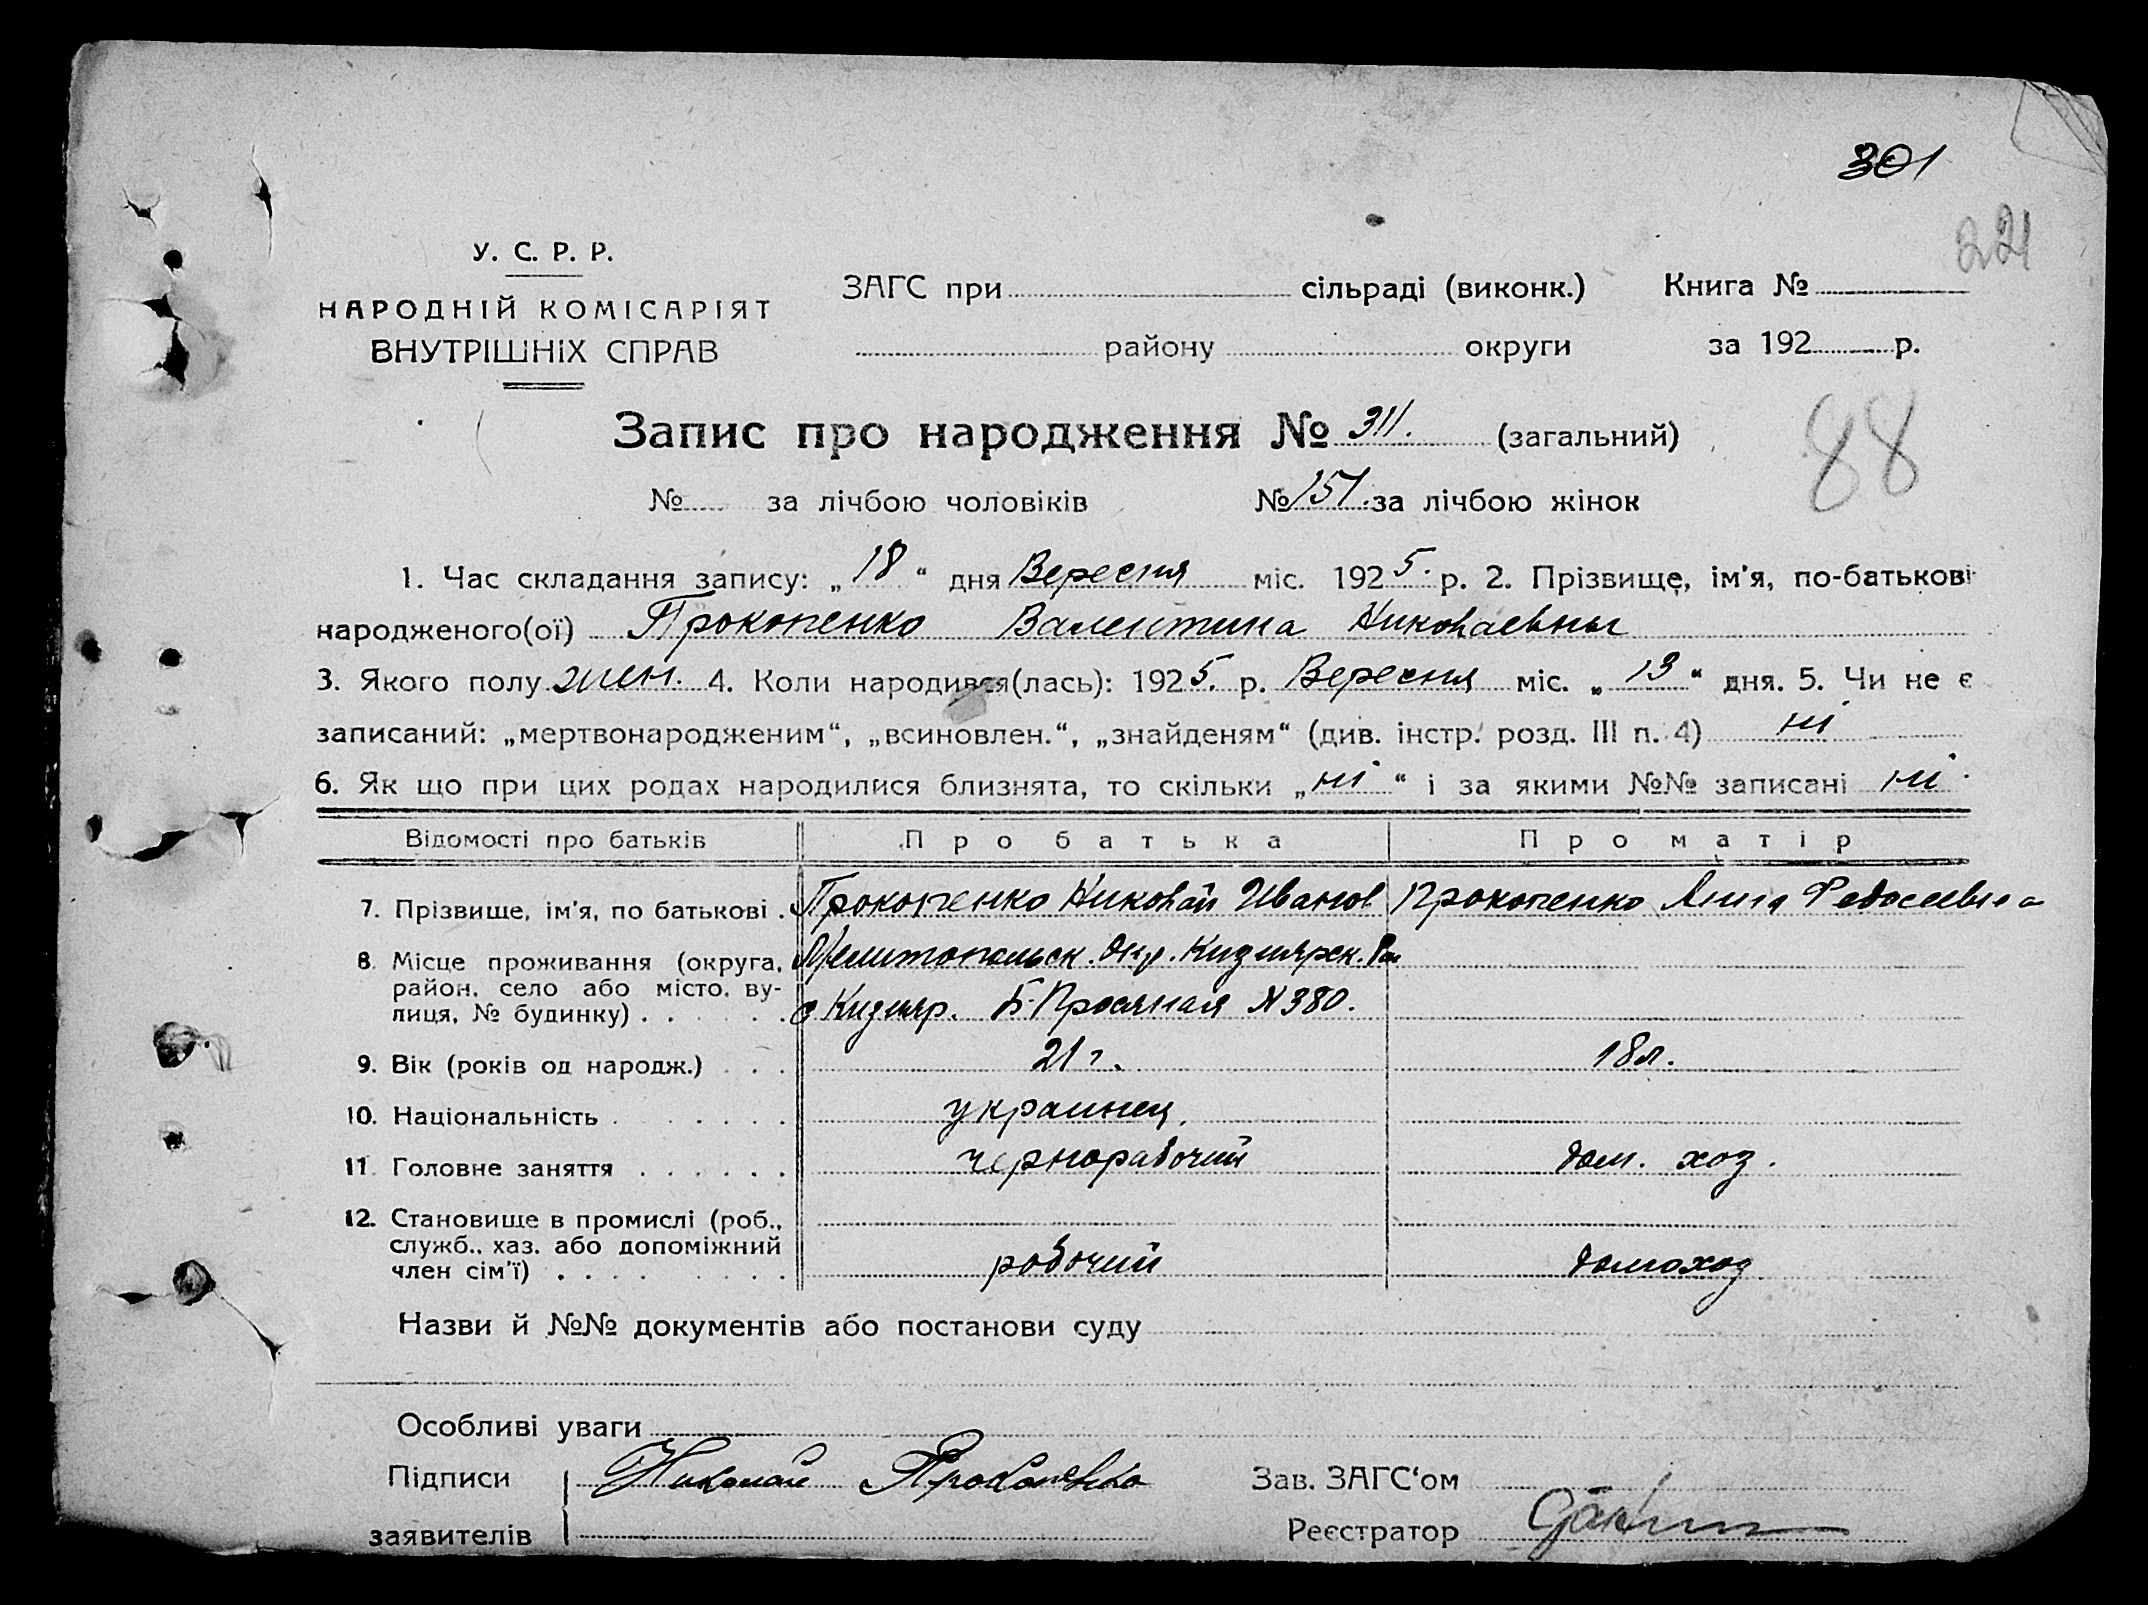 301
221
У. С. Р. Р.
НАРОДНІЙ КОМІСАРІЯТ
ВНУТРІШНІХ СПРАВ
ЗАГС при сільраді (виконк.) Книга №
району округи за 192 р.
88
Запис про народження № 311. (загальний)
№ за лічбою чоловіків № 151. за лічбою жінок
1. Час складання запису: „18“ дня Вересня міс. 1925. р. 2. Прізвище, ім'я, по-батькові
народженого(ої) Прокопенко Валентина Николаевны
3. Якого полу жен. 4. Коли народився(лась): 1925. р. Вересня міс. „13“ дня. 5. Чи не є
записаний: „мертвонародженим“, „всиновлен.“, „знайденям“ (див. інстр. розд. III п. 4) ні
6. Як що при цих родах народилися близнята, то скільки „ні“ і за якими №№ записані ні.
Відомості про батьків Про батька Про матір
7. Прізвище, ім'я, по батькові . Прокопенко Николай Иванов Прокопенко Анна Федосеевна
8. Місце проживання (округа, Мелитопольск. Окр. Кизиярск. Рай
район, село або місто, ву-
лиця, № будинку) . . . . . с Кизияр. Б-Просяная № 380.
9. Вік (років од народж.) . . . 21 г. 18 л.
10. Національність . . . . . . . украинец.
11. Головне заняття . . . . . . чернорабочий дом. хоз.
12. Становище в промислі (роб.,
служб., хаз. або допоміжний
член сім'ї) . . . . . . . рабочий домохоз
Назви й №№ документів або постанови суду
Особливі уваги
Підписи Николай Прокопенко Зав. ЗАГС‘ом
заявителів Реєстратор